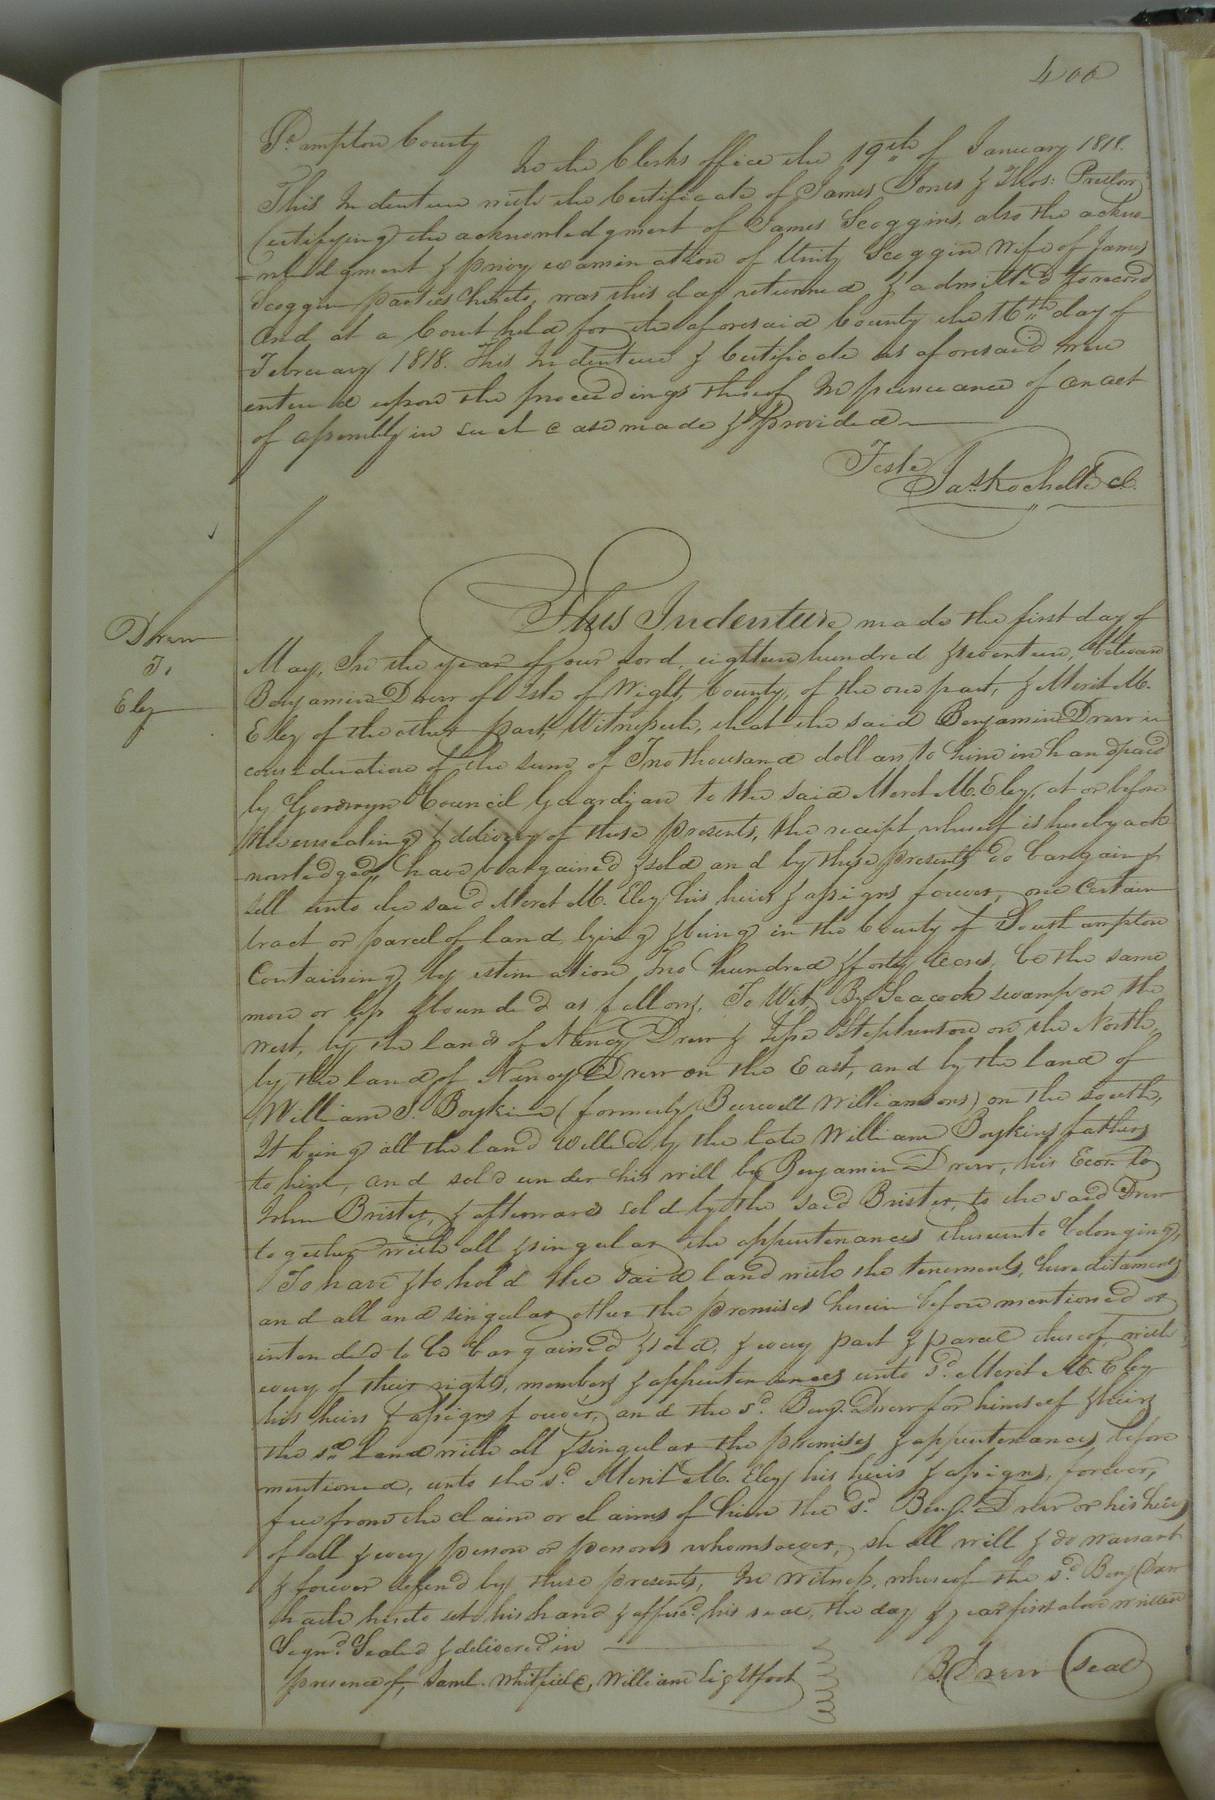 400
So.ampton County In the Clerks office the 19th of January 1818.
This Indenture with the Certificate of James Jones & Thos: Pretlow
Certifying the acknowledgment of James Scoggins, also the acknow
-ledgment & privy examination of Unity Scoggin Wife of James
Scoggin parties hereto, was this day returned & admitted to record
And at a Court held for the aforesaid County the 16th day of
February 1818. This Indenture & Certificate as aforesaid were
entered upon the proceedings thereof In persuance of an act
of assembly in such case made & provided
Teste
Jas. Rochelle CC.
Drew
To
Eley
This Indenture made the first day of
May, In the year of our Lord, eighteen hundred & seventeen, between
Benjamin Drew of Isle of Wight County, of the one part, & Merit M.
Eley of the other part, Witnesseth, that the said Benjamin Drew in
consideration of the sum of Two thousand dollars to him in hand paid
by Goodwyn Council Guardian to the said Meret M. Eley, at or before
the ensealing & delivery of these presents, the receipt whereof is hereby ack
nowledged, have bargained & sold and by these presents do bargain &
sell unto the said Meret M. Eley his heirs & assigns forever, one Certain
tract or parcel of land lying & being in the County of Southampton
Containing by estimation Two hundred & forty acres, be the same
more or less & bounded as follows, To Wit, By Seacock swamp on the
West, by the lands of Nancy Drew & Jesse Stephenson on the North,
by the land of Nancy Drew on the East, and by the land of
William S. Boykin (formerly Burwell Williamsons) on the south,
It being all the land Willed by the late William Boykins father,
to him, and sold under his will by Benjamin Drew, his Ecor. to
John Brister, & afterward sold by the said Brister, to the said Drew
together with all & singular the appertenances thereunto belonging,
To have & to hold the said land with the tenements, hereditaments
and all and singular other the premises herein before mentioned or
intended to be bargained & sold, & every part & parcel thereof with
every of their rights, members & appertenances unto Sd. Merit M. Eley
his heirs & assigns forever, and the sd. Benj. Drew for himself & heirs
the sd. land with all & singular the premises & appertenances before
mentioned, unto the sd. Merit M. Eley his heirs & assigns, forever,
free from the claim or claims of him the sd. Benj. Drew or his heirs
of all & every person or persons whomsoever, shall will & do warrant
& forever defend by these presents, In Witness, whereof the sd. Benj Drew
hath hereto set his hand & affixed his seal, the day & year first above written
Signd. Sealed & delivered in
presence of, Saml. Whitfield, William Lightfoot B. Drew (seal)